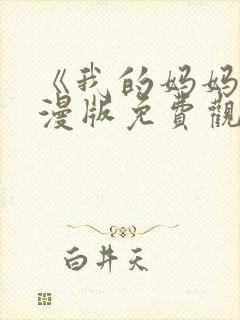 《我的妈妈
漫版免費觀
白井天